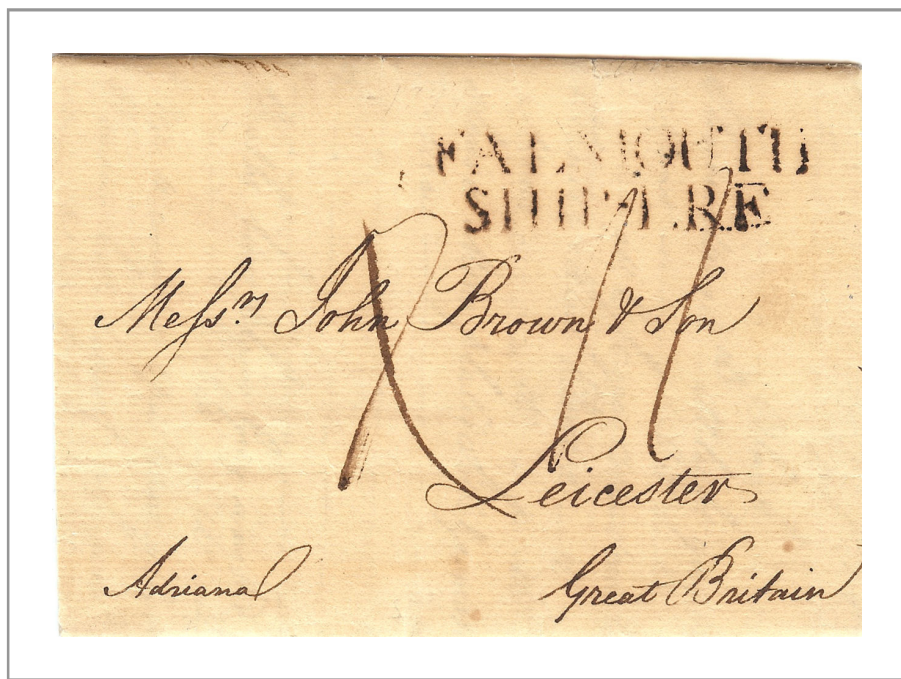 FALMOUTH
SHIP-LRE
Messrs John Brown & Son
Leicester
Adriana
Great Britain